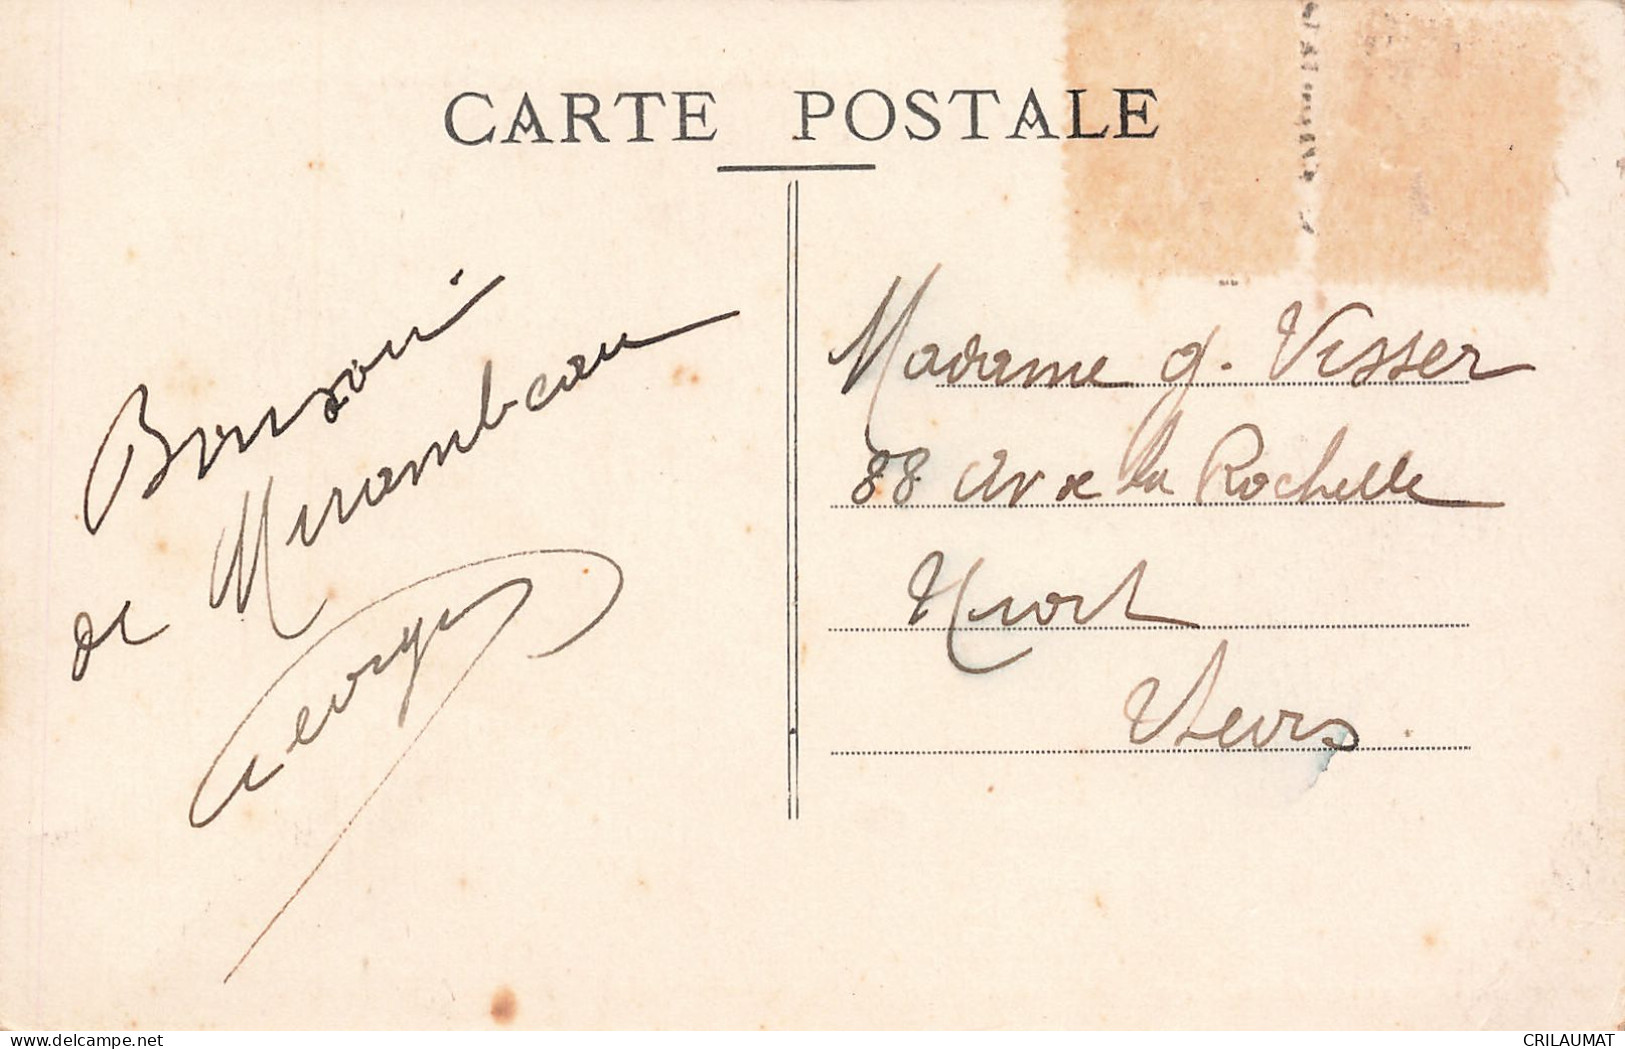 CARTE POSTALE
Bonsoir
de Mirambeau
Georges
Madame G. Visser
88 Av de la Rochelle
Niort
2 Sevres
delcampe.net
CRILAUMAT